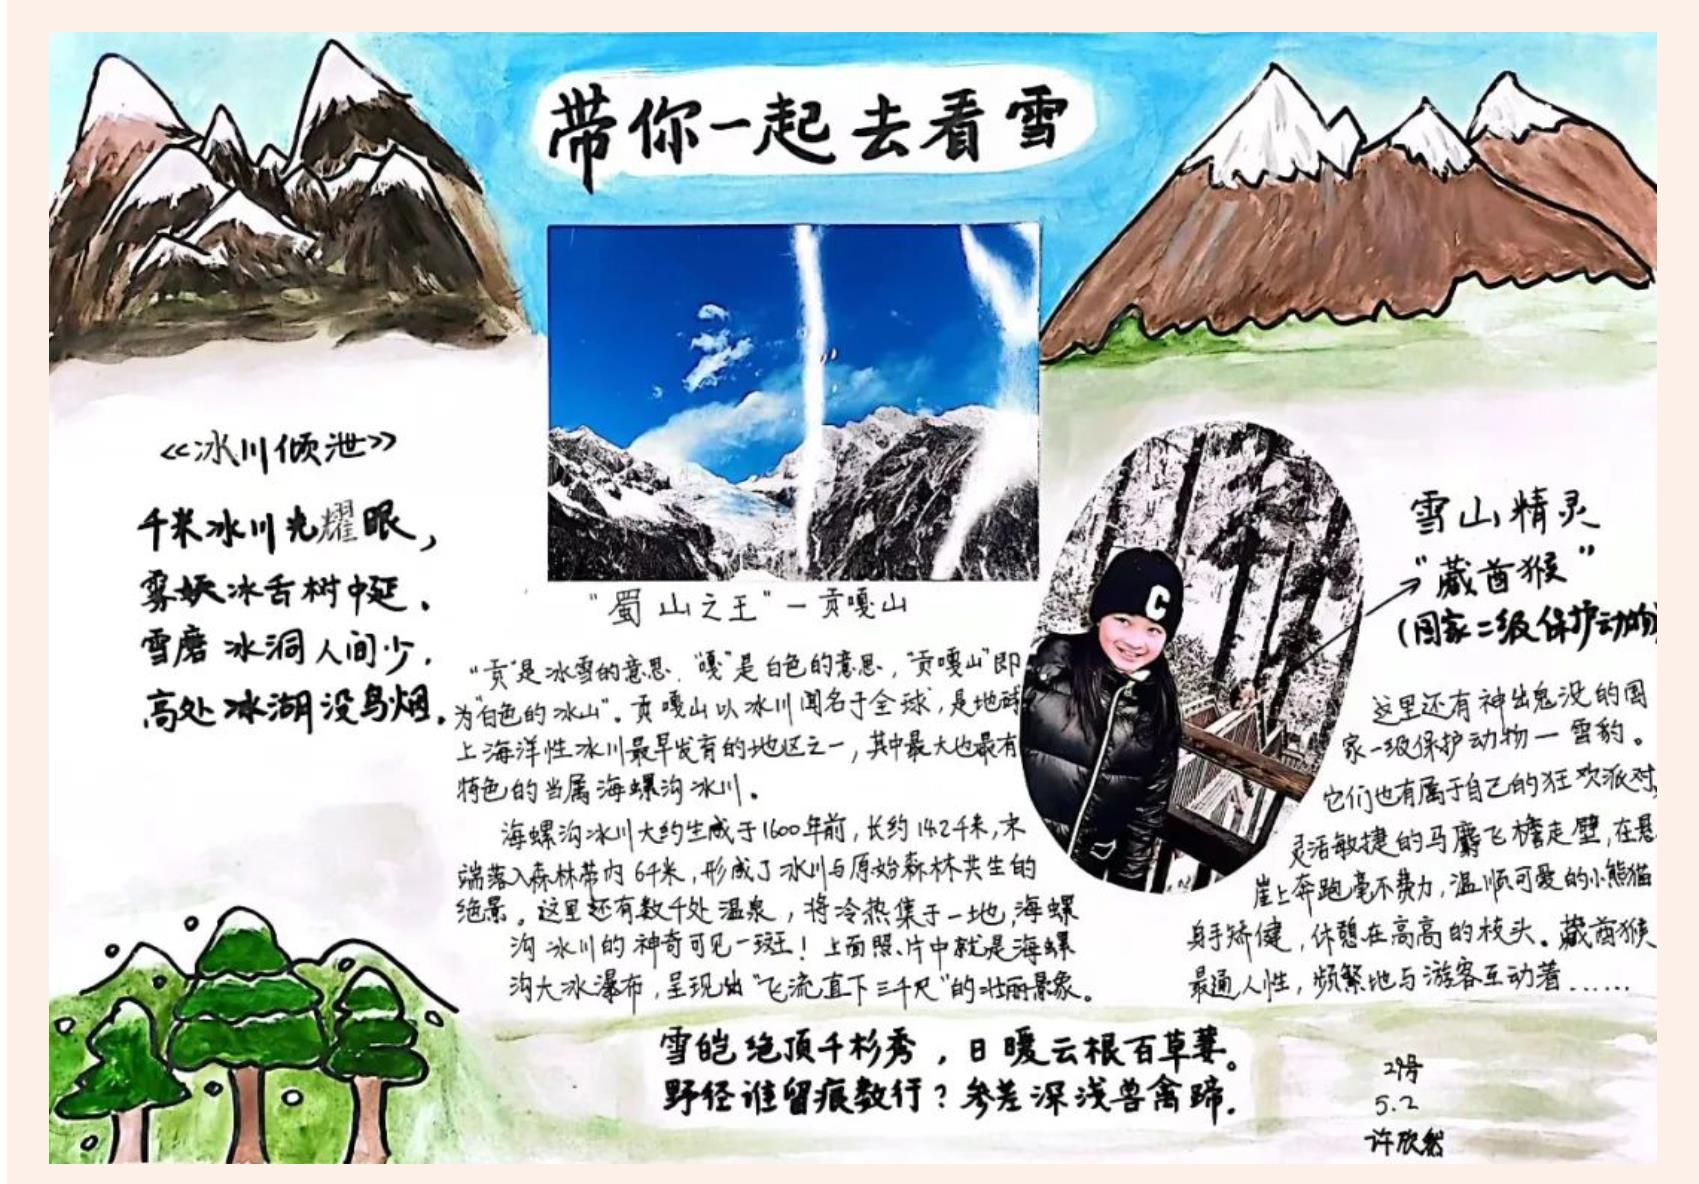 带你一起去看雪
《冰川倾泄》
千米冰川光耀眼，
雾妖冰舌树中延。
雪磨冰洞人间少，
高处冰湖没鸟烟。
“蜀山之王”—贡嘎山
“贡”是冰雪的意思，“嘎”是白色的意思，“贡嘎山”即
为“白色的冰山”。贡嘎山以冰川闻名于全球，是地球
上海洋性冰川最早发育的地区之一，其中最大也最有
特色的当属海螺沟冰川。
海螺沟冰川大约生成于1600年前，长约14.2千米，末
端落入森林带内6千米，形成了冰川与原始森林共生的
绝景。这里还有数千处温泉，将冷热集于一地，海螺
沟冰川的神奇可见一斑！上面照片中就是海螺
沟大冰瀑布，呈现出“飞流直下三千尺”的壮丽景象。
C
雪山精灵
“藏酋猴”
(国家二级保护动物
这里还有神出鬼没的国
家一级保护动物—雪豹。
它们也有属于自己的狂欢派对，
灵活敏捷的马麝飞檐走壁，在悬
崖上奔跑毫不费力，温顺可爱的小熊猫
身手矫健，休憩在高高的枝头。藏酋猴
最通人性，频繁地与游客互动着……
雪皑绝顶千杉秀，日暖云根百草萋。
野径谁留痕数行？参差深浅兽禽蹄。
29号
5.2
许欣然